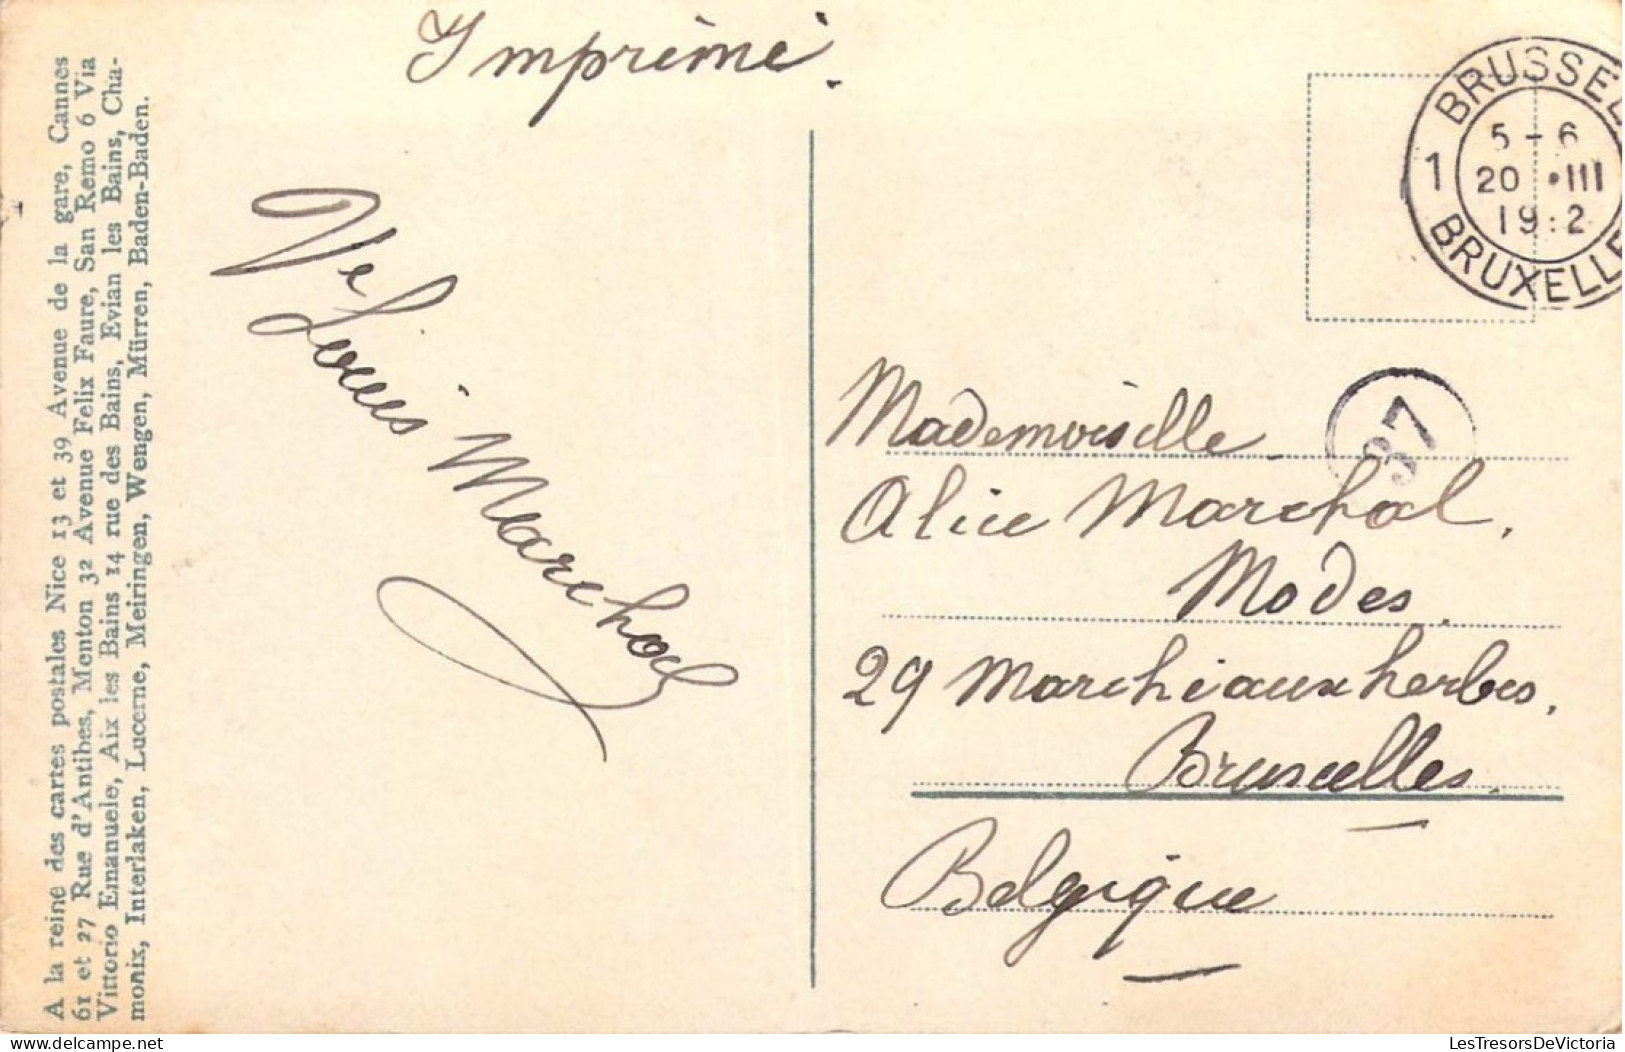 Imprimé.
BRUSSEL
5 - 6
1 20 • III
19:2
BRUXELLE
37
Ve Louis Marchal
Mademoiselle
Alice Marchal,
Modes.
29 Marché aux herbes,
Bruxelles.
Belgique
A la reine des cartes postales Nice 13 et 39 Avenue de la gare, Cannes
61 et 27 Rue d'Antibes, Menton 32 Avenue Felix Faure, San Remo 6 Via
Vittorio Emanuele, Aix les Bains 14 rue des Bains, Evian les Bains, Cha-
monix, Interlaken, Lucerne, Meiringen, Wengen, Mürren, Baden-Baden.
LesTresorsDeVictoria